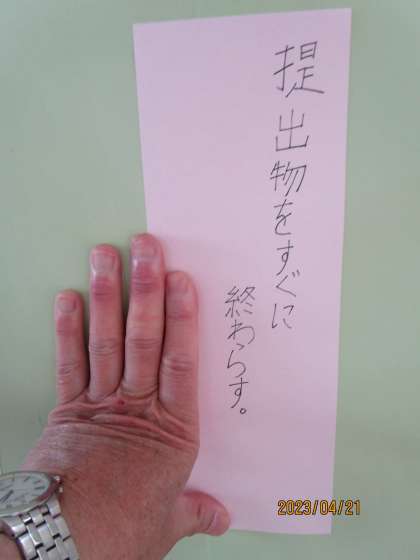 提出物をすぐに
終わらす。
2023/04/21